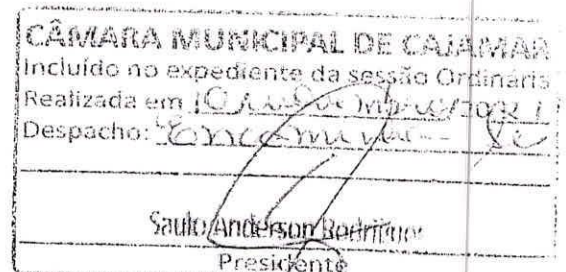 CÂMARA MUNICIPAL DE CAJAMAR
Incluído no expediente da sessão Ordinária
Realizada em 10
Despacho: Encaminha-se
Saulo Anderson Rodrigues
Presidente